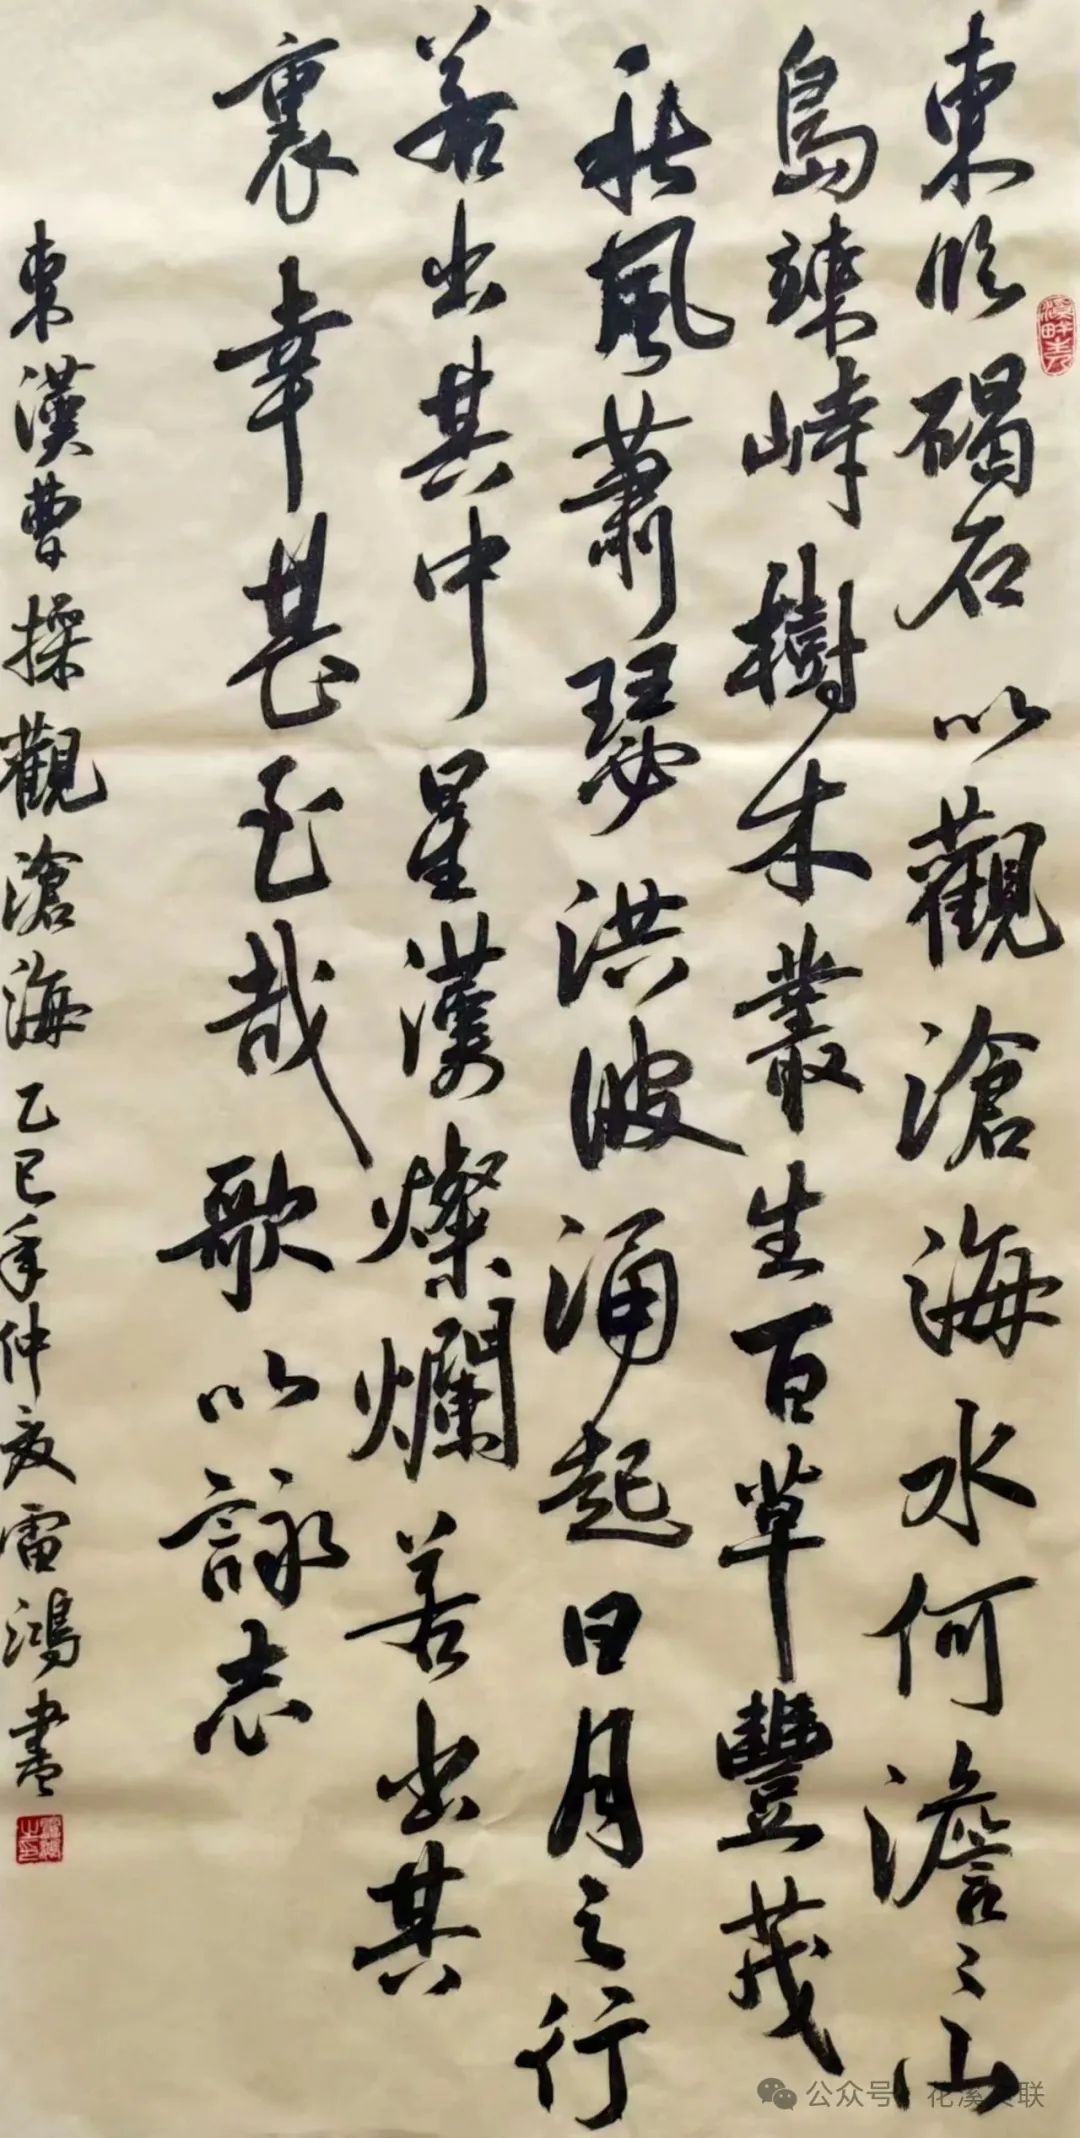 東臨碣石以觀滄海水何澹〻山
島竦峙樹木叢生百草豐茂
秋風蕭瑟洪波涌起日月之行
若出其中星漢燦爛若出其
裏幸甚至哉歌以詠志
東漢曹操觀滄海乙巳年仲夏雷鴻書
公众号 花溪 联